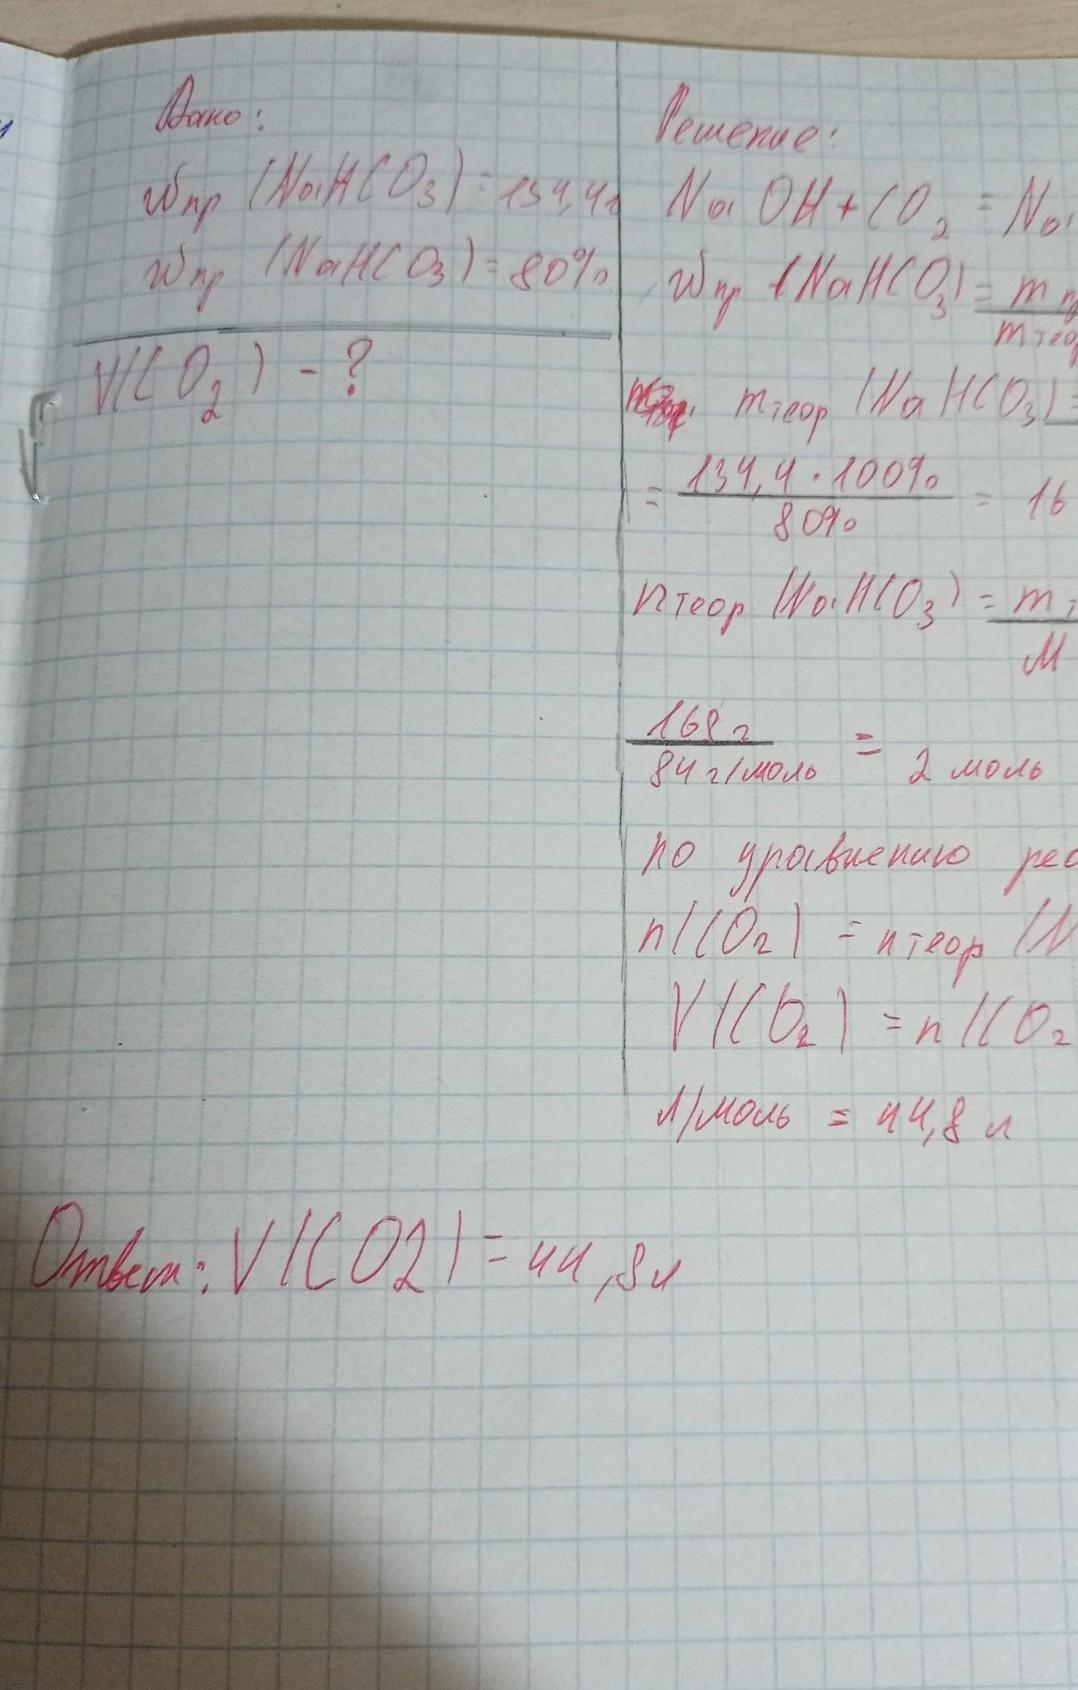 Дано:
Wпр (NaHCO3) = 134,4г
Wпр (NaHCO3) = 80%
V(CO2) - ?
Решение:
NaOH + CO2 = Na
Wпр (NaHCO3) = mп
mтеор
mтеор (NaHCO3) =
= 134,4 · 100% = 16
80%
nтеор (NaHCO3) = mт
M
168г = 2 моль
84 г/моль
по уравнению реа
n(CO2) = nтеор (N
V(CO2) = n(CO2
л/моль = 44,8 л
Ответ: V(CO2) = 44,8л